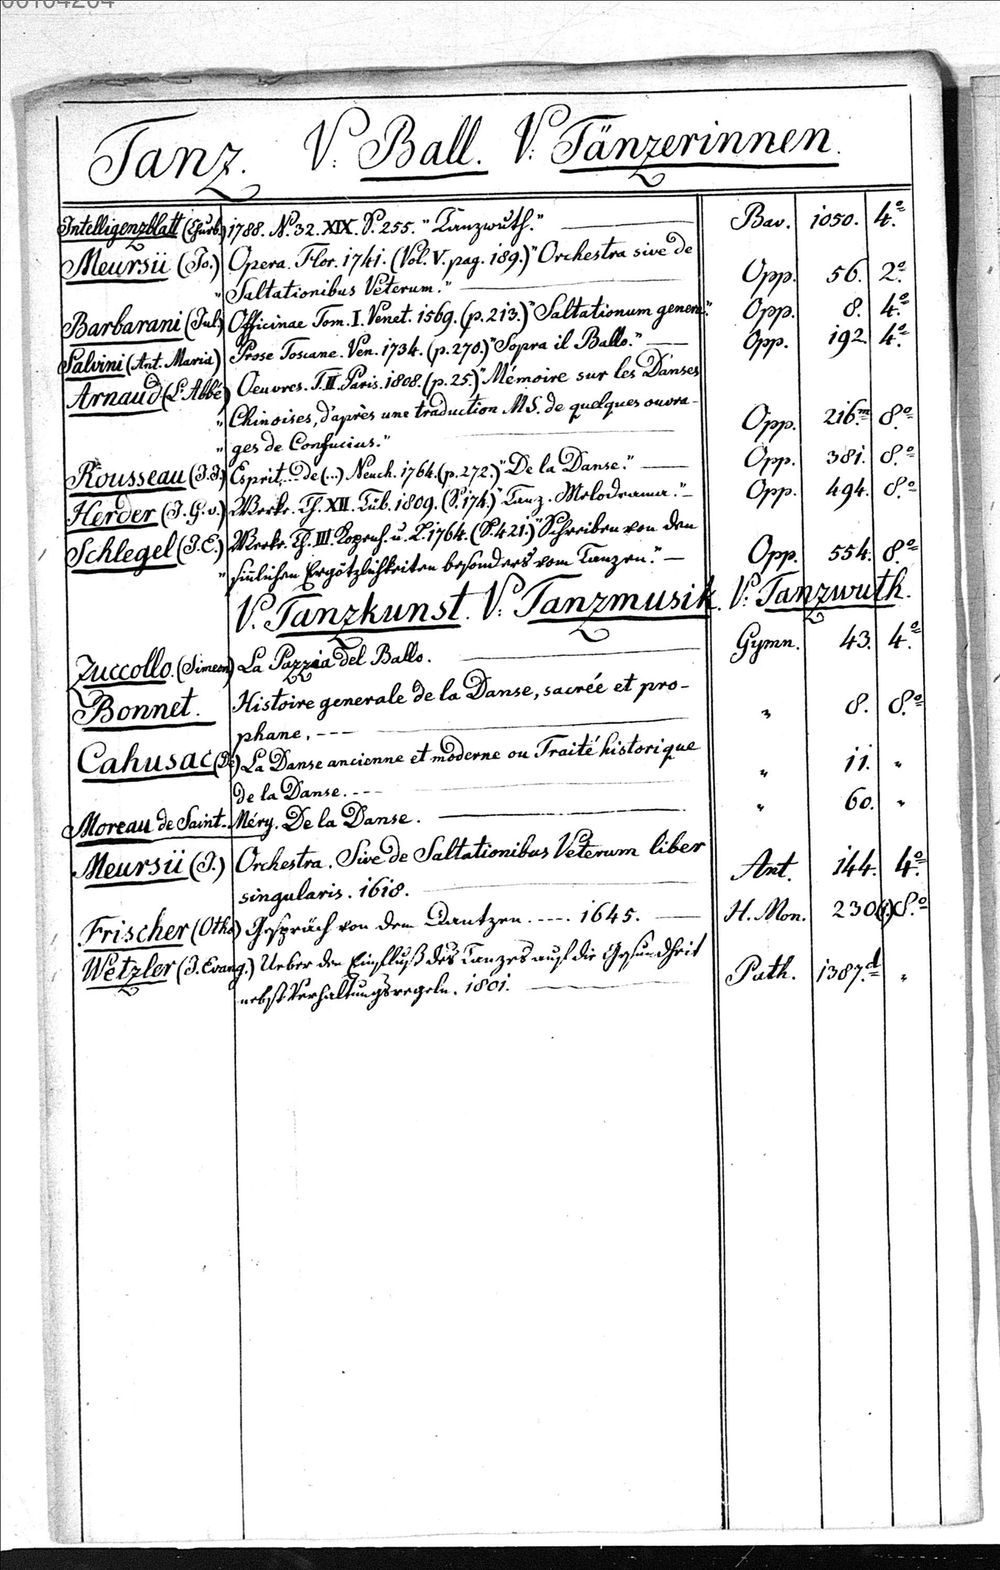 Tanz. V. Ball. V. Tänzerinnen.
Intelligenzblatt (Churb.) 1788. No. 32. XIX. S. 255. "Tanzwuth." Bav. 1050. 4.o
Meursii (Jo.) Opera. Flor. 1741. (Vol. V. pag. 189.) "Orchestra sive de
" Saltationibus Veterum." Opp. 56. 2.o
Barbarani (Jul.) Officinae Tom. I. Venet. 1569. (p. 213.) "Saltationum genera." Opp. 8. 4.o
Salvini (Ant. Maria) Prose Toscane. Ven. 1734. (p. 270.) "Sopra il Ballo." Opp. 192. 4.o
Arnaud (L'Abbé) Oeuvres. T. III. Paris. 1808. (p. 25.) "Mémoire sur les Danses
" Chinoises, d'après une traduction MS. de quelques ouvra-
" ges de Confucius." Opp. 216.m 8.o
Rousseau (J. J.) Esprit... de (...) Neuch. 1764. (p. 272.) "De la Danse." Opp. 381. 8.o
Herder (J. G. v.) Werke. Th. XII. Tüb. 1809. (S. 174.) "Tanz. Melodrama." Opp. 494. 8.o
Schlegel (J. E.) Werke. Th. III. Kopenh. u. L. 1764. (S. 421.) "Schreiben von den
" sinlichen Ergötzlichkeiten besonders vom Tanzen." Opp. 554. 8.o
V. Tanzkunst. V. Tanzmusik. V. Tanzwuth.
Zuccollo. (Simeon) La Pazzia del Ballo. Gymn. 43. 4.o
Bonnet. Histoire generale de la Danse, sacrée et pro-
phane, --- " 8. 8.o
Cahusac (De) La Danse ancienne et moderne ou Traité historique
de la Danse. --- " 11. "
Moreau de Saint-Méry. De la Danse. " 60. "
Meursii (J.) Orchestra. Sive de Saltationibus Veterum liber
singularis. 1618. Ant. 144. 4.o
Frischer (Otho) Gespräch von dem Dantzen. ---- 1645. H. Mon. 230 8.o
Wetzler (J. Evang.) Ueber den Einfluß des Tanzes auf die Gesundheit
nebst Verhaltungsregeln. 1801. Path. 1387.d "